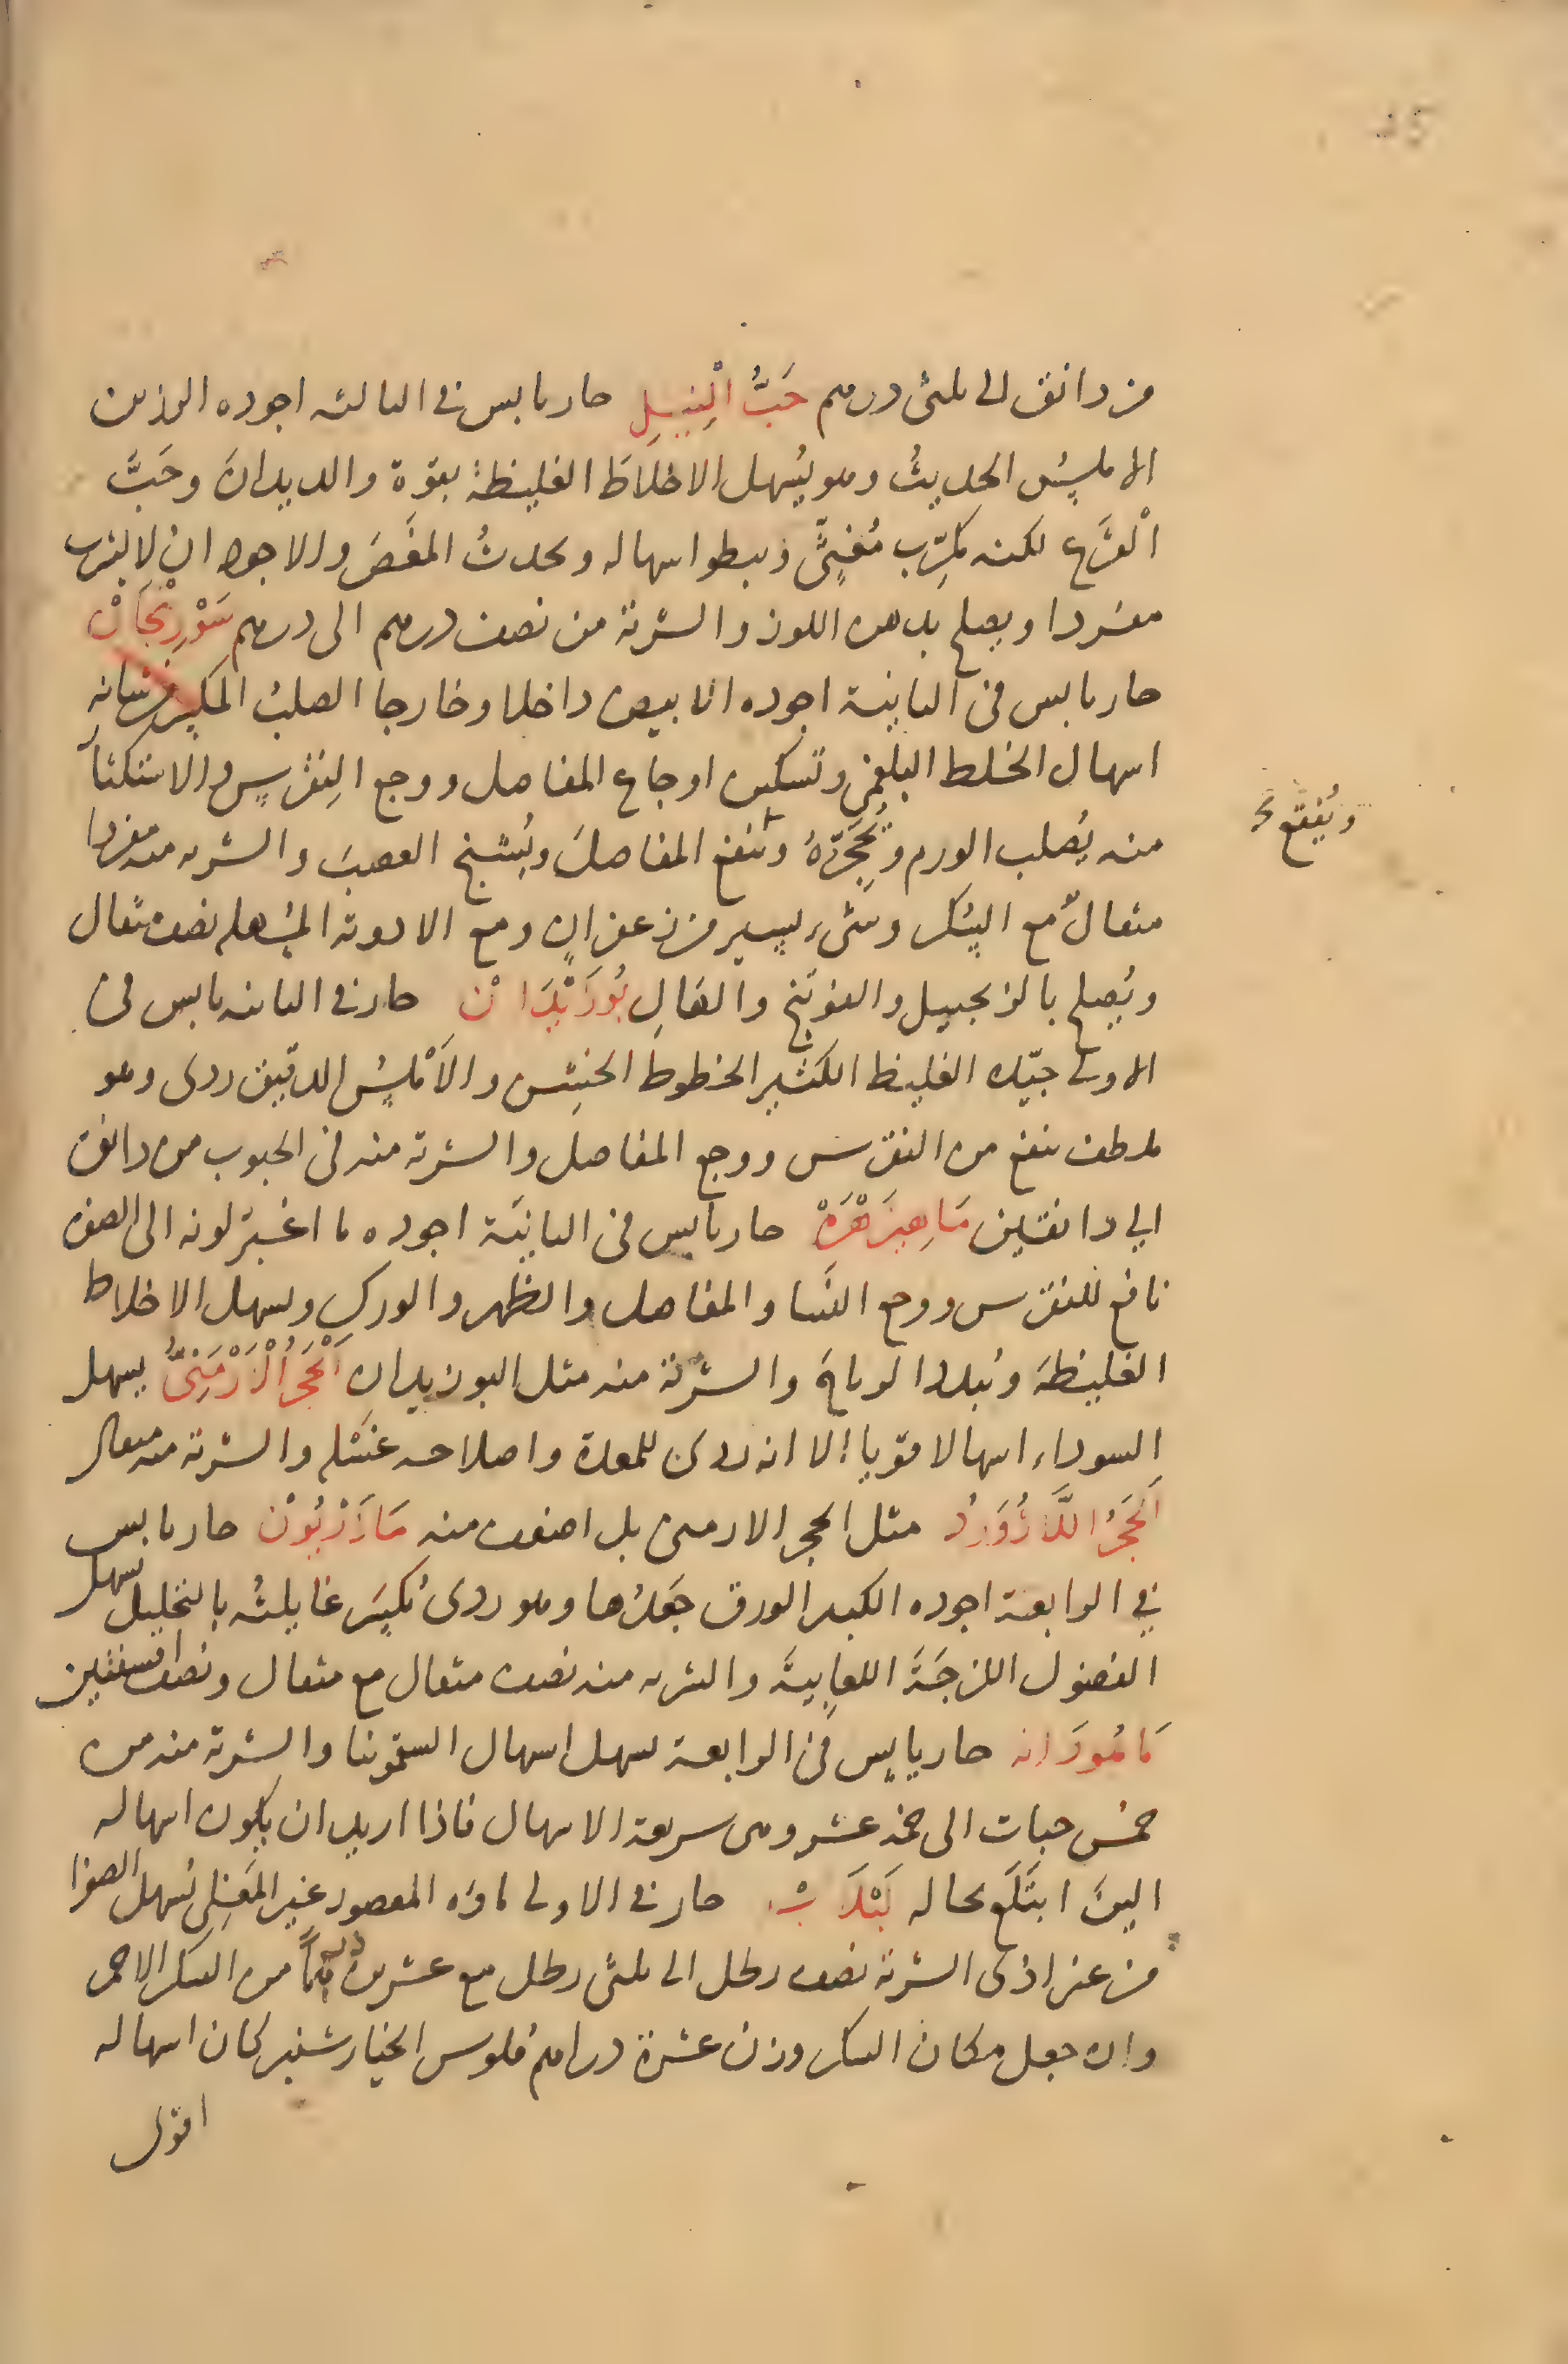 من دانق الى ثلثى درهم حَبُّ الْنِيلِ حار يابس فى الثالثه اجوده الرزين
الاملِسُ الحديثُ وهو يُسهل الاخلاطَ الغليظةَ بقوّة والديدانَ وحَبَّ
الْقَرَع لكنه مُكرِّب مُغثٍّ ويبطو اسهاله ويحدثُ المغَصَ والاجود ان لا يشرب
مفردا ويصلح بدهن اللوز والشربة من نصف درهم الى درهم سَوْرِنْجَانْ
حار يابس فى الثانية اجوده الابيض داخلا وخارجا الصلبُ المكسر من شانه
اسهال الخلط البلغمى وتسكين اوجاع المفاصل ووجع النِقْرِس والاستكثار
منه يُصلب الورم ويُحَجِّرُهُ وينفع المفاصلَ ويُشنج العصبَ والشربه منه مفردا
ويُنفع
مثقالٌ مع السُكر وشىء يسير من زعفرانٍ ومع الادوية المسُهله نصف مثقال
ويُصلح بالزنجبيل والفوتنج والقالِ بُوزَيْدَانْ حار فى الثانيه يابس فى
الاولى جيّده الغليظ الكثير الخطوط الخشن والاَمْلسُ الدقيق ردى وهو
ملطف ينفع من النقرس ووجع المفاصل والشربة منه فى الحبوب من دانق
الى دانقين مَاهِيزَهْرَهْ حار يابس فى الثانيَة اجوده ما اغبرّ لونه الى الصفرة
نافع للنقرس ووجع النَسا والمفاصل والظهر والوركِ ويسهل الاخلاط
الغليظة ويُبدد الرياحَ والشربة منه مثل البوزيدان اَلْحَجَرُ الْاَرْمَنِىُّ يسهل
السوداء اسهالا قويا الا انه ردى للمعدة واصلاحه غَسْله والشربة منه مثقال
اَلحَجَرُ اللَّازُوَرْدُ مثل الحجر الارمنى بل اضعف منه مَازَرْيُوْن حار يابس
فى الرابعة اجوده الكبير الورق جَعْدُها وهو ردى تُكسَر غايلتُه بالتخليل يسهل
الفضول اللزجَةَ اللعابيةَ والشربه منه نصف مثقال مع مثقال ونصف افسنتين
مَاهُودَانه حار يابس فى الرابعة يسهل اسهال السقمونيا والشربة منه من
خمسُ حبات الى خمسه عشر وهى سريعة الاسهال فاذا اريد ان يكون اسهاله
الينَ ابتَلَع بحاله لَبْلَابْ حار فى الاولى ماؤه المعصور غير المغلِى يُسهل الصفرا
من غير اذى الشربة نصف رطل الى ثلثى رطل مع عشرين درهماً من السكر الاحمر
وان جعل مكان السكر وزن عشرة دراهم فلوس الخيارشنبر كان اسهاله
اقوى